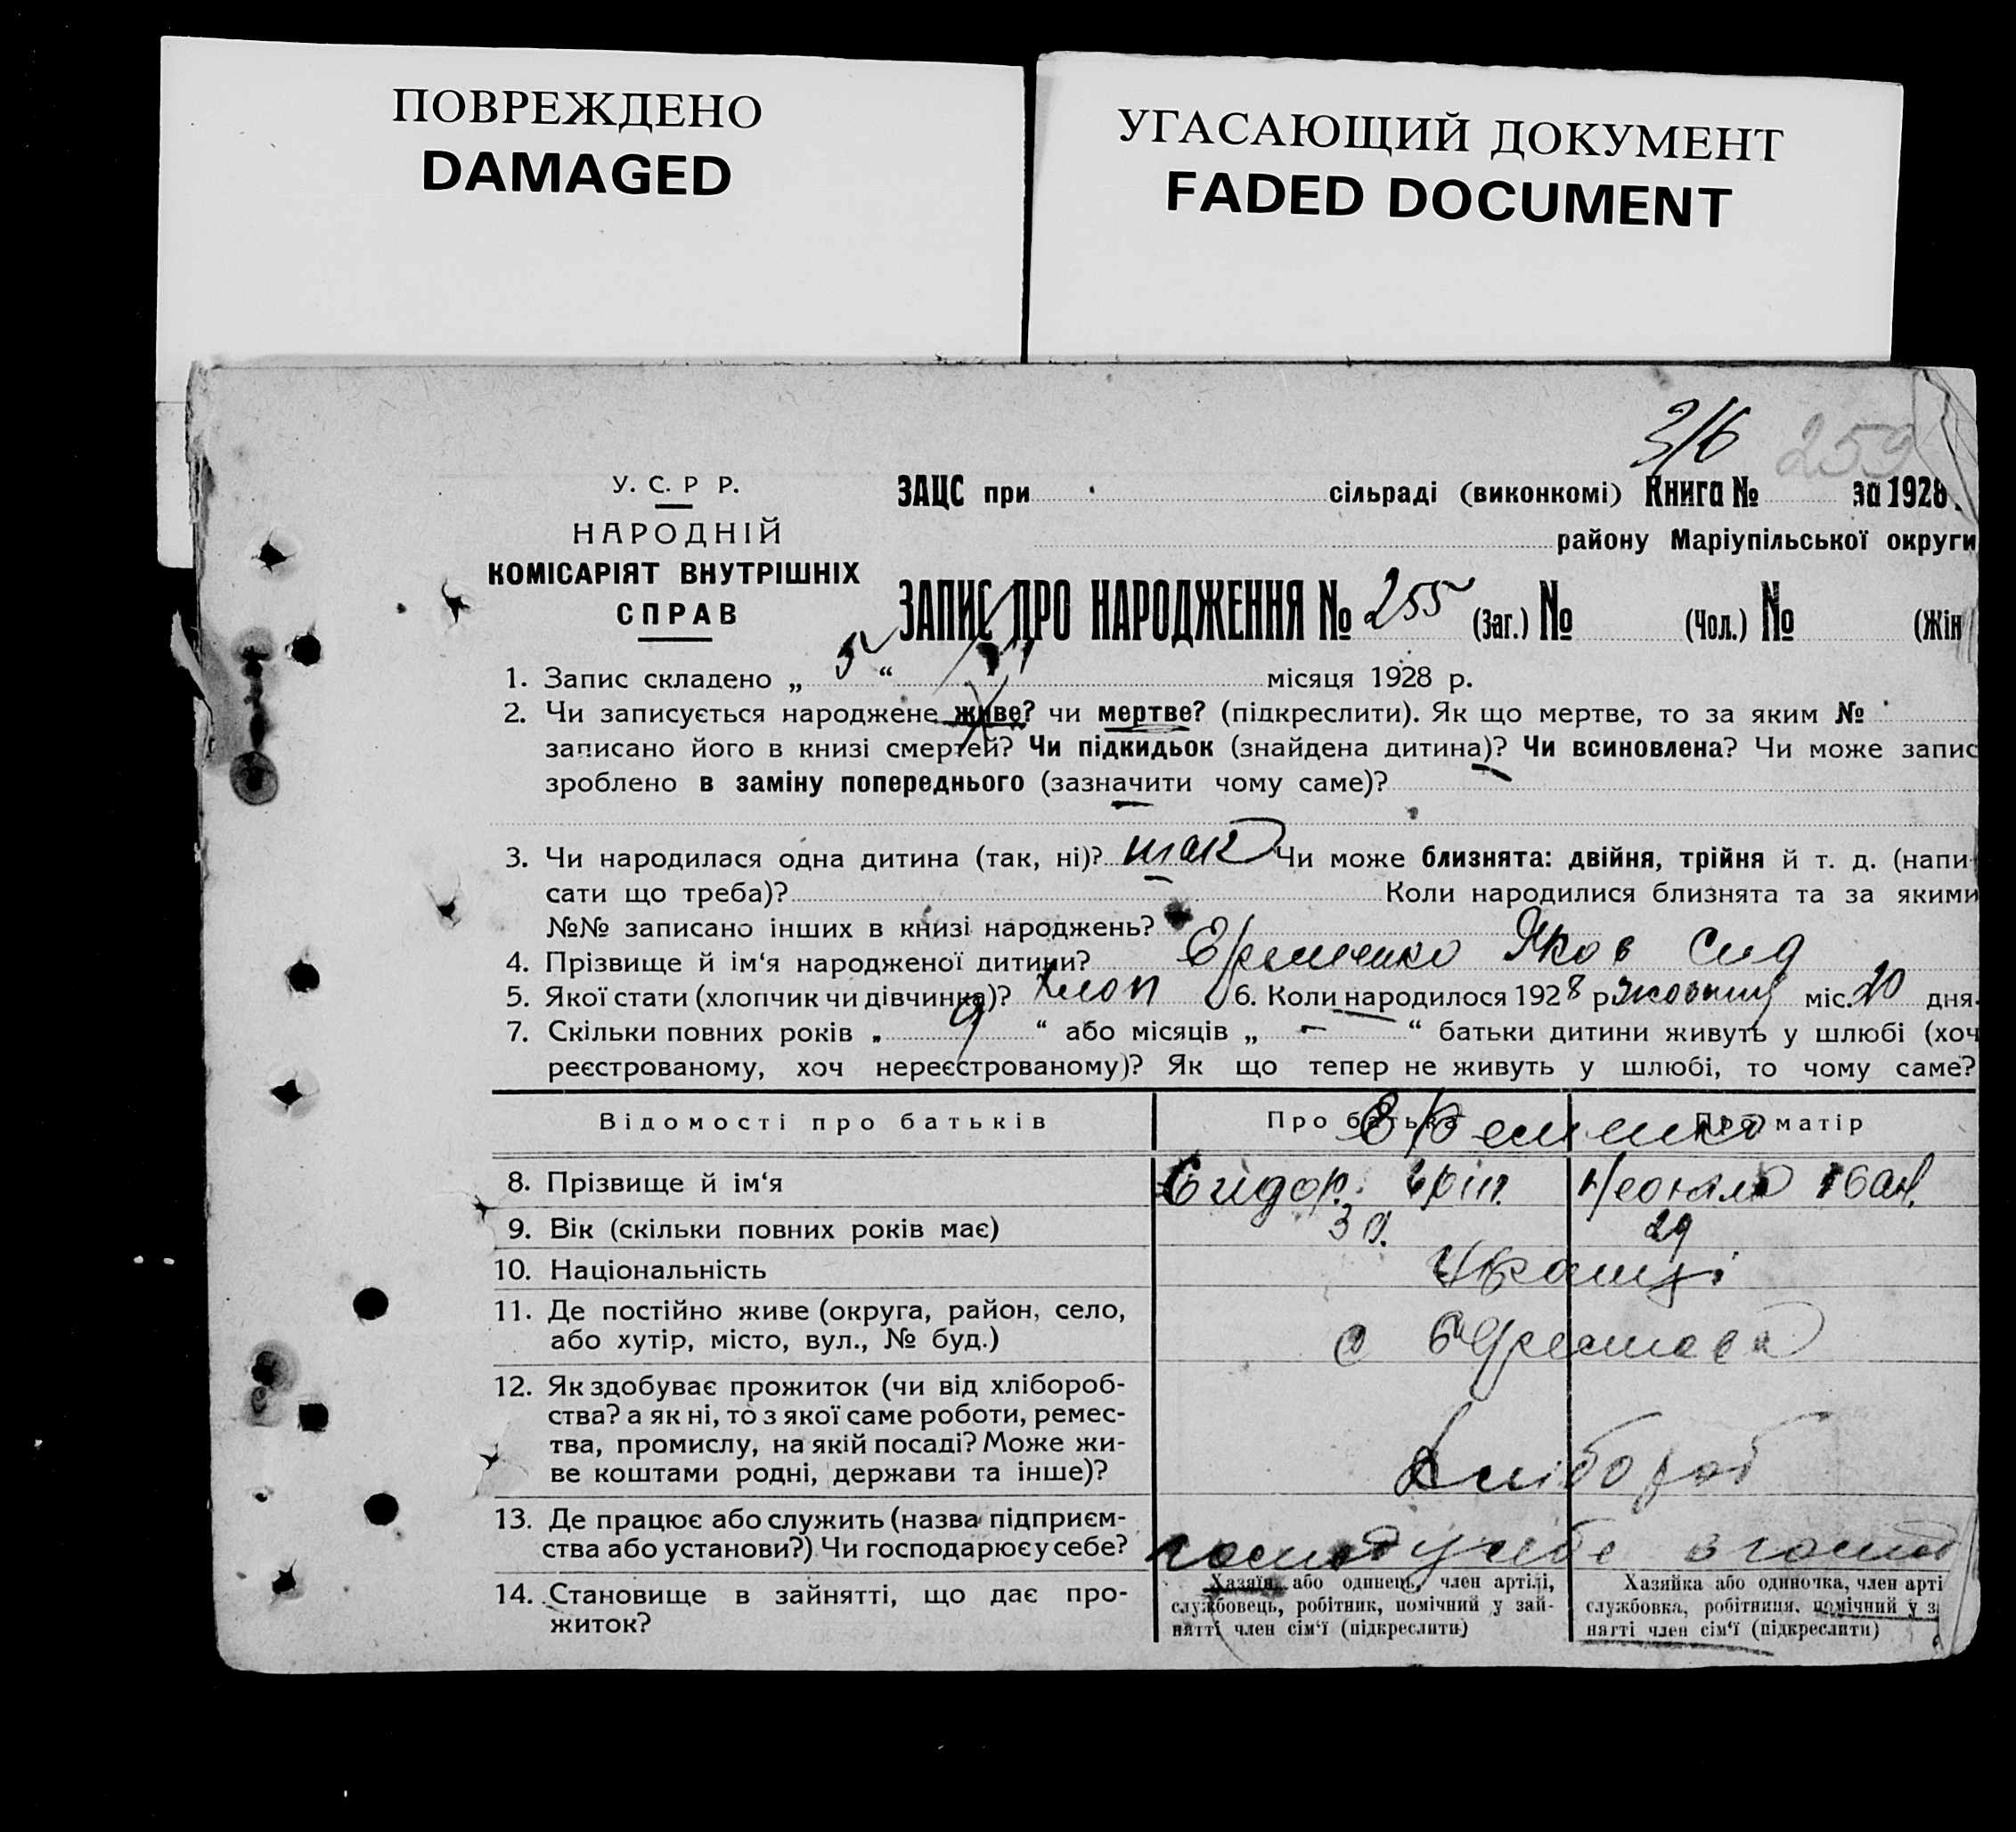 ПОВРЕЖДЕНО
DAMAGED
УГАСАЮЩИЙ ДОКУМЕНТ
FADED DOCUMENT
316 259
У. С. Р Р.
НАРОДНІЙ
КОМІСАРІЯТ ВНУТРІШНІХ
СПРАВ
ЗАЦС при сільраді (виконкомі) Книга № за 1928
району Маріупільської округи
ЗАПИС ПРО НАРОДЖЕННЯ № 255 (Заг.) № (Чол.) № (Жін
1. Запис складено „ 5 “ місяця 1928 р.
2. Чи записується народжене живе? чи мертве? (підкреслити). Як що мертве, то за яким №
записано його в книзі смертей? Чи підкидьок (знайдена дитина)? Чи всиновлена? Чи може запис
зроблено в заміну попереднього (зазначити чому саме)?
3. Чи народилася одна дитина (так, ні)? так Чи може близнята: двійня, трійня й т. д. (напи-
сати що треба)? Коли народилися близнята та за якими
№№ записано інших в книзі народжень?
4. Прізвище й ім‘я народженої дитини? Еременко Яков Сид
5. Якої стати (хлопчик чи дівчинка)? хлоп 6. Коли народилося 1928 р. жовтня міс. 20 дня.
7. Скільки повних років „ 9 “ або місяців „ – “ батьки дитини живуть у шлюбі (хоч
реєстрованому, хоч нереєстрованому)? Як що тепер не живуть у шлюбі, то чому саме?
Відомості про батьків Про батька Про матір
Еременко
8. Прізвище й ім‘я Сидор
9. Вік (скільки повних років має) 29
10. Національність Українці
11. Де постійно живе (округа, район, село,
або хутір, місто, вул., № буд.) с
12. Як здобуває прожиток (чи від хлібороб-
ства? а як ні, то з якої саме роботи, ремес-
тва, промислу, на якій посаді? Може жи-
ве коштами родні, держави та інше)? Хлібороб
13. Де працює або служить (назва підприєм-
ства або установи?) Чи господарює у себе? господ у себе в господ
14. Становище в зайнятті, що дає про-
житок?
Хазяїн або одинець, член артілі,
службовець, робітник, помічний у зай-
нятті член сім‘ї (підкреслити)
Хазяйка або одиночка, член арті
службовка, робітниця, помічний у з
нятті член сім‘ї (підкреслити)